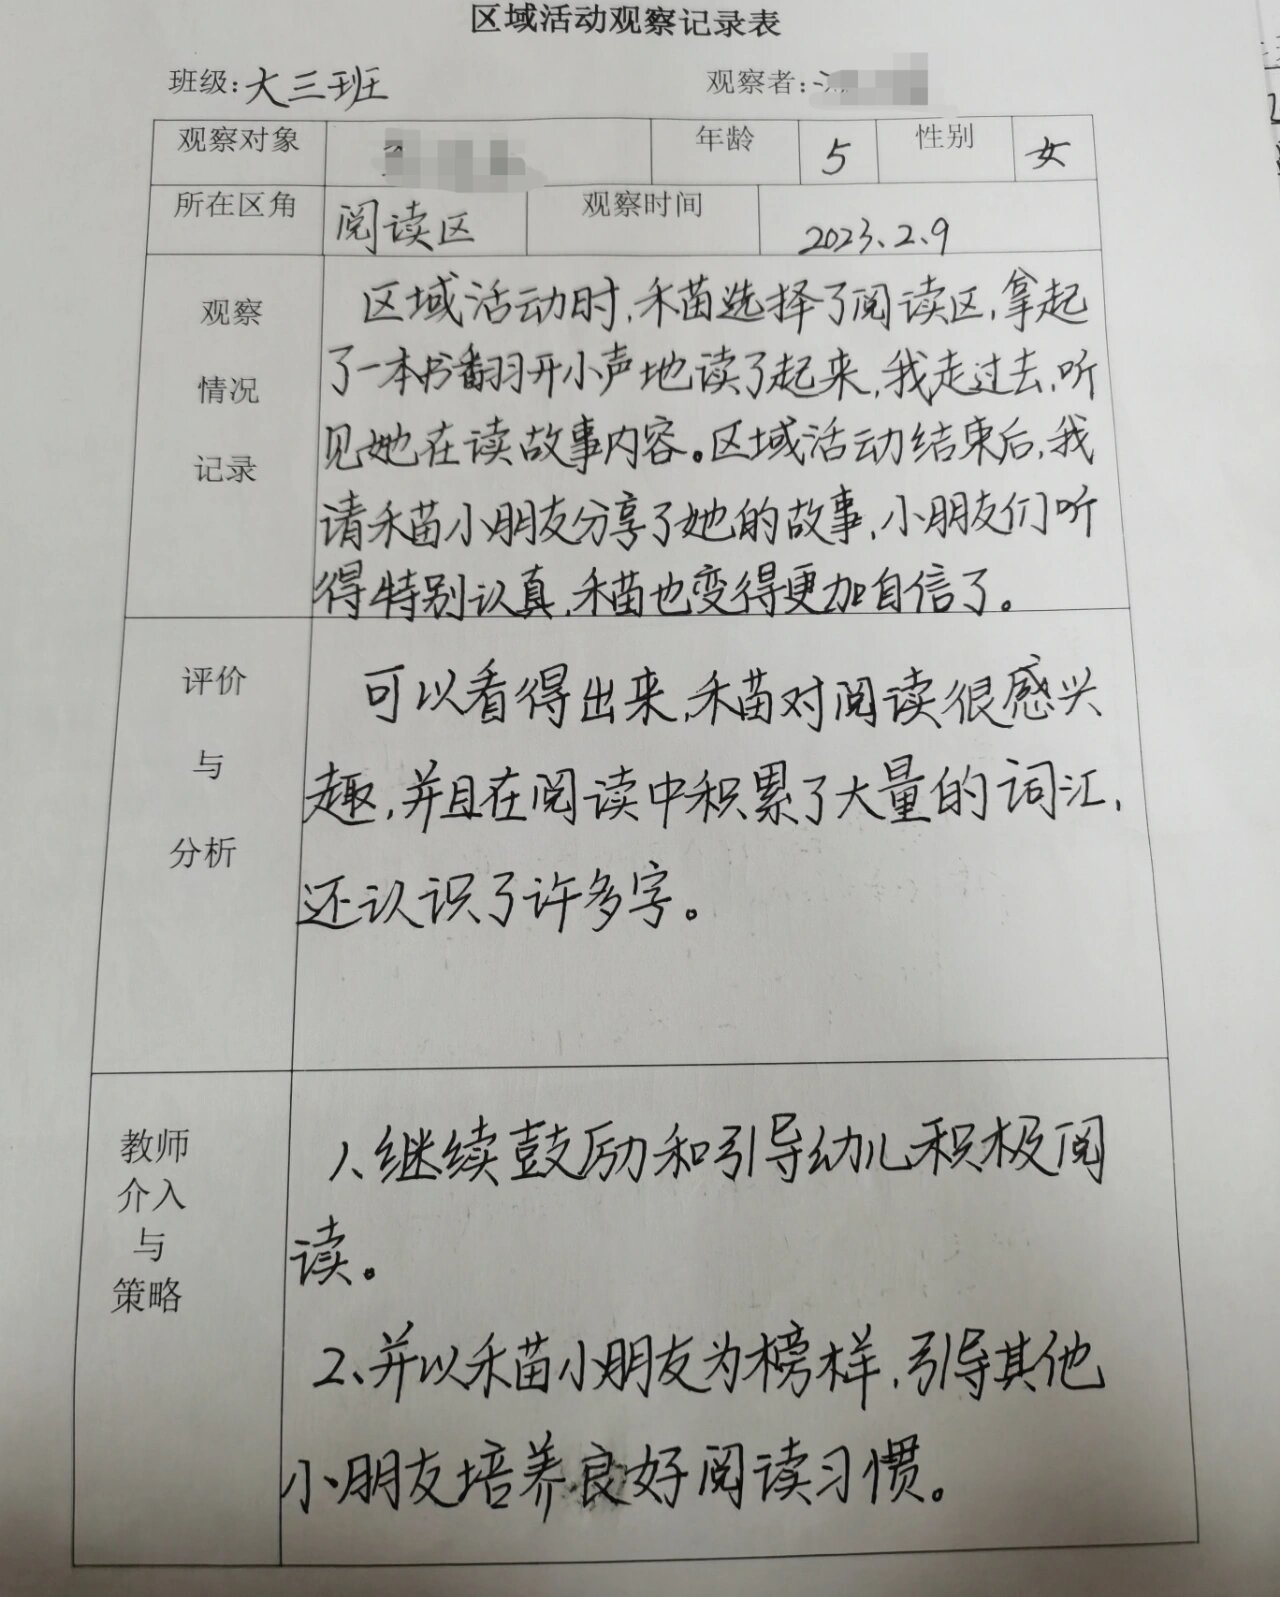 区域活动观察记录表
班级:大三班 观察者:
观察对象 年龄 5 性别 女
所在区角 阅读区 观察时间 2023.2.9
观察
情况
记录
区域活动时,禾苗选择了阅读区,拿起
了一本书翻开小声地读了起来,我走过去,听
见她在读故事内容。区域活动结束后,我
请禾苗小朋友分享了她的故事,小朋友们听
得特别认真,禾苗也变得更加自信了。
评价
与
分析
可以看得出来,禾苗对阅读很感兴
趣,并且在阅读中积累了大量的词汇,
还认识了许多字。
教师
介入
与
策略
1、继续鼓励和引导幼儿积极阅
读。
2、并以禾苗小朋友为榜样,引导其他
小朋友培养良好阅读习惯。